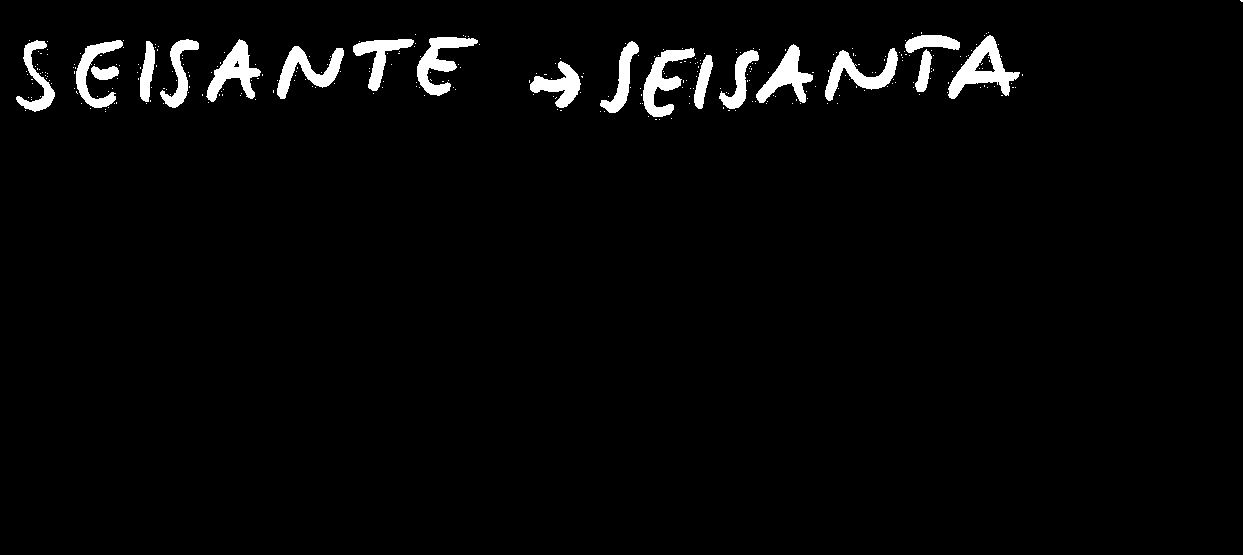 SEISANTE → SEISANTA